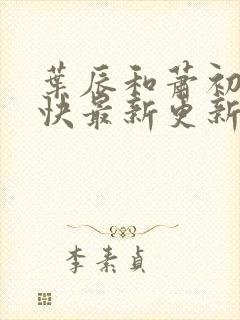 葉辰和蕭初
快最新更新
李素貞